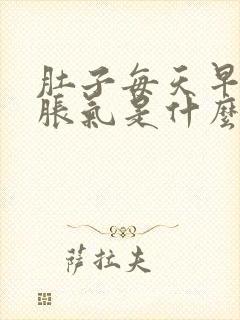 肚子每天早
脹氣是什麼
萨拉夫